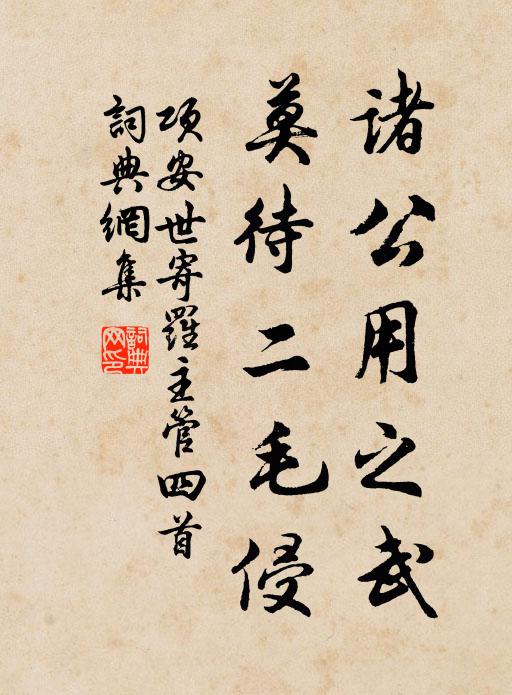 諸公用之武
莫待二毛侵
項安世寄羅主管四首
詞典網集
詞典網印